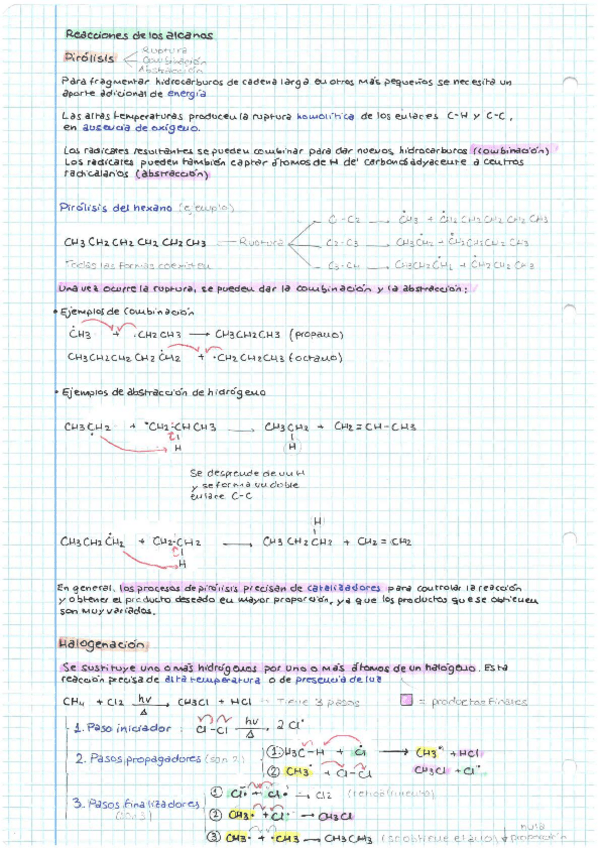 Reacciones de los alcanos
Pirólisis
Ruptura
Combinación
Abstracción
Para fragmentar hidrocarburos de cadena larga en otros más pequeños se necesita un
aporte adicional de energía
Las altas temperaturas producen la ruptura homolítica de los enlaces C-H y C-C,
en ausencia de oxígeno.
Los radicales resultantes se pueden combinar para dar nuevos hidrocarburos (combinación)
Los radicales pueden también captar átomos de H de carbonos adyacente a centros
radicalarios (abstracción)
Pirólisis del hexano (ejemplo)
C1-C2 → ĊH3 + ĊH2 CH2 CH2 CH2 CH3
CH3 CH2 CH2 CH2 CH2 CH3 — Ruptura
C2-C3 → CH3ĊH2 + ĊH2CH2CH2 CH3
Todas las formas coexisten
C3-C4 → CH3CH2ĊH2 + ĊH2CH2 CH3
Una vez ocurre la ruptura, se pueden dar la combinación y la abstracción:
• Ejemplos de combinación
ĊH3 + ·CH2CH3 → CH3CH2CH3 (propano)
CH3CH2CH2CH2CH2ĊH2 + ·CH2CH2CH3 (octano)
• Ejemplos de abstracción de hidrógeno
CH3CH2 + ·CH2-CHCH3 → CH3CH2 + CH2=CH-CH3
H H
Se desprende de un H
y se forma un doble
enlace C-C
H
CH3CH2ĊH2 + CH2-CH2 → CH3CH2CH2 + CH2=CH2
H
En general, los procesos de pirólisis precisan de catalizadores para controlar la reacción
y obtener el producto deseado en mayor proporción, ya que los productos que se obtienen
son muy variados.
Halogenación
Se sustituye uno o más hidrógenos por uno o más átomos de un halógeno. Esta
reacción precisa de alta temperatura o de presencia de luz
CH4 + Cl2 hν/Δ → CH3Cl + HCl → Tiene 3 pasos
= productos finales
1. Paso iniciador: Cl-Cl hν/Δ → 2 Cl·
2. Pasos propagadores (son 2)
① H3C-H + Cl· → CH3· + HCl
② CH3· + Cl-Cl CH3Cl + Cl·
3. Pasos finalizadores (son 3)
① Cl· + Cl· → Cl2
② CH3· + Cl· → CH3Cl
③ CH3· + ·CH3 → CH3CH3